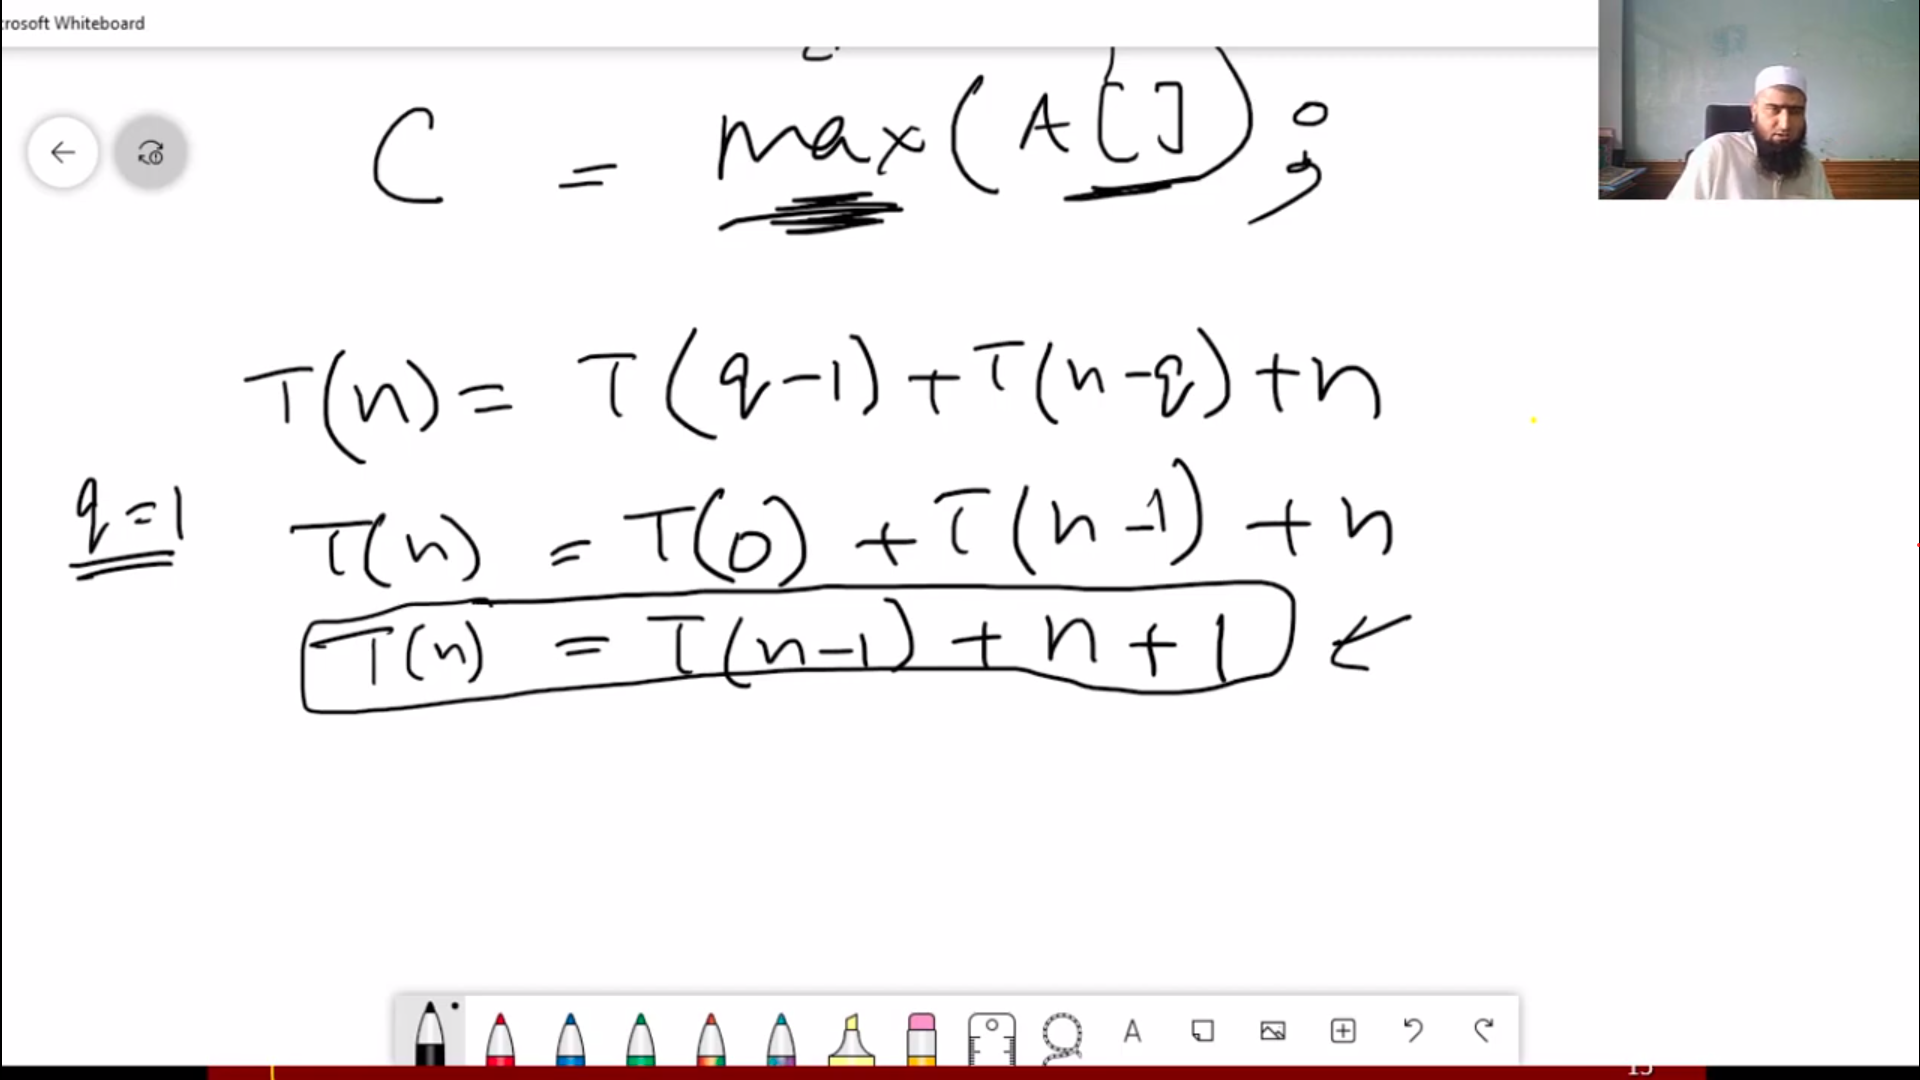 crosoft Whiteboard
C = max(A[]);
T(n) = T(q-1) + T(n-q) + n
q=1 T(n) = T(0) + T(n-1) + n
T(n) = T(n-1) + n + 1
A
15